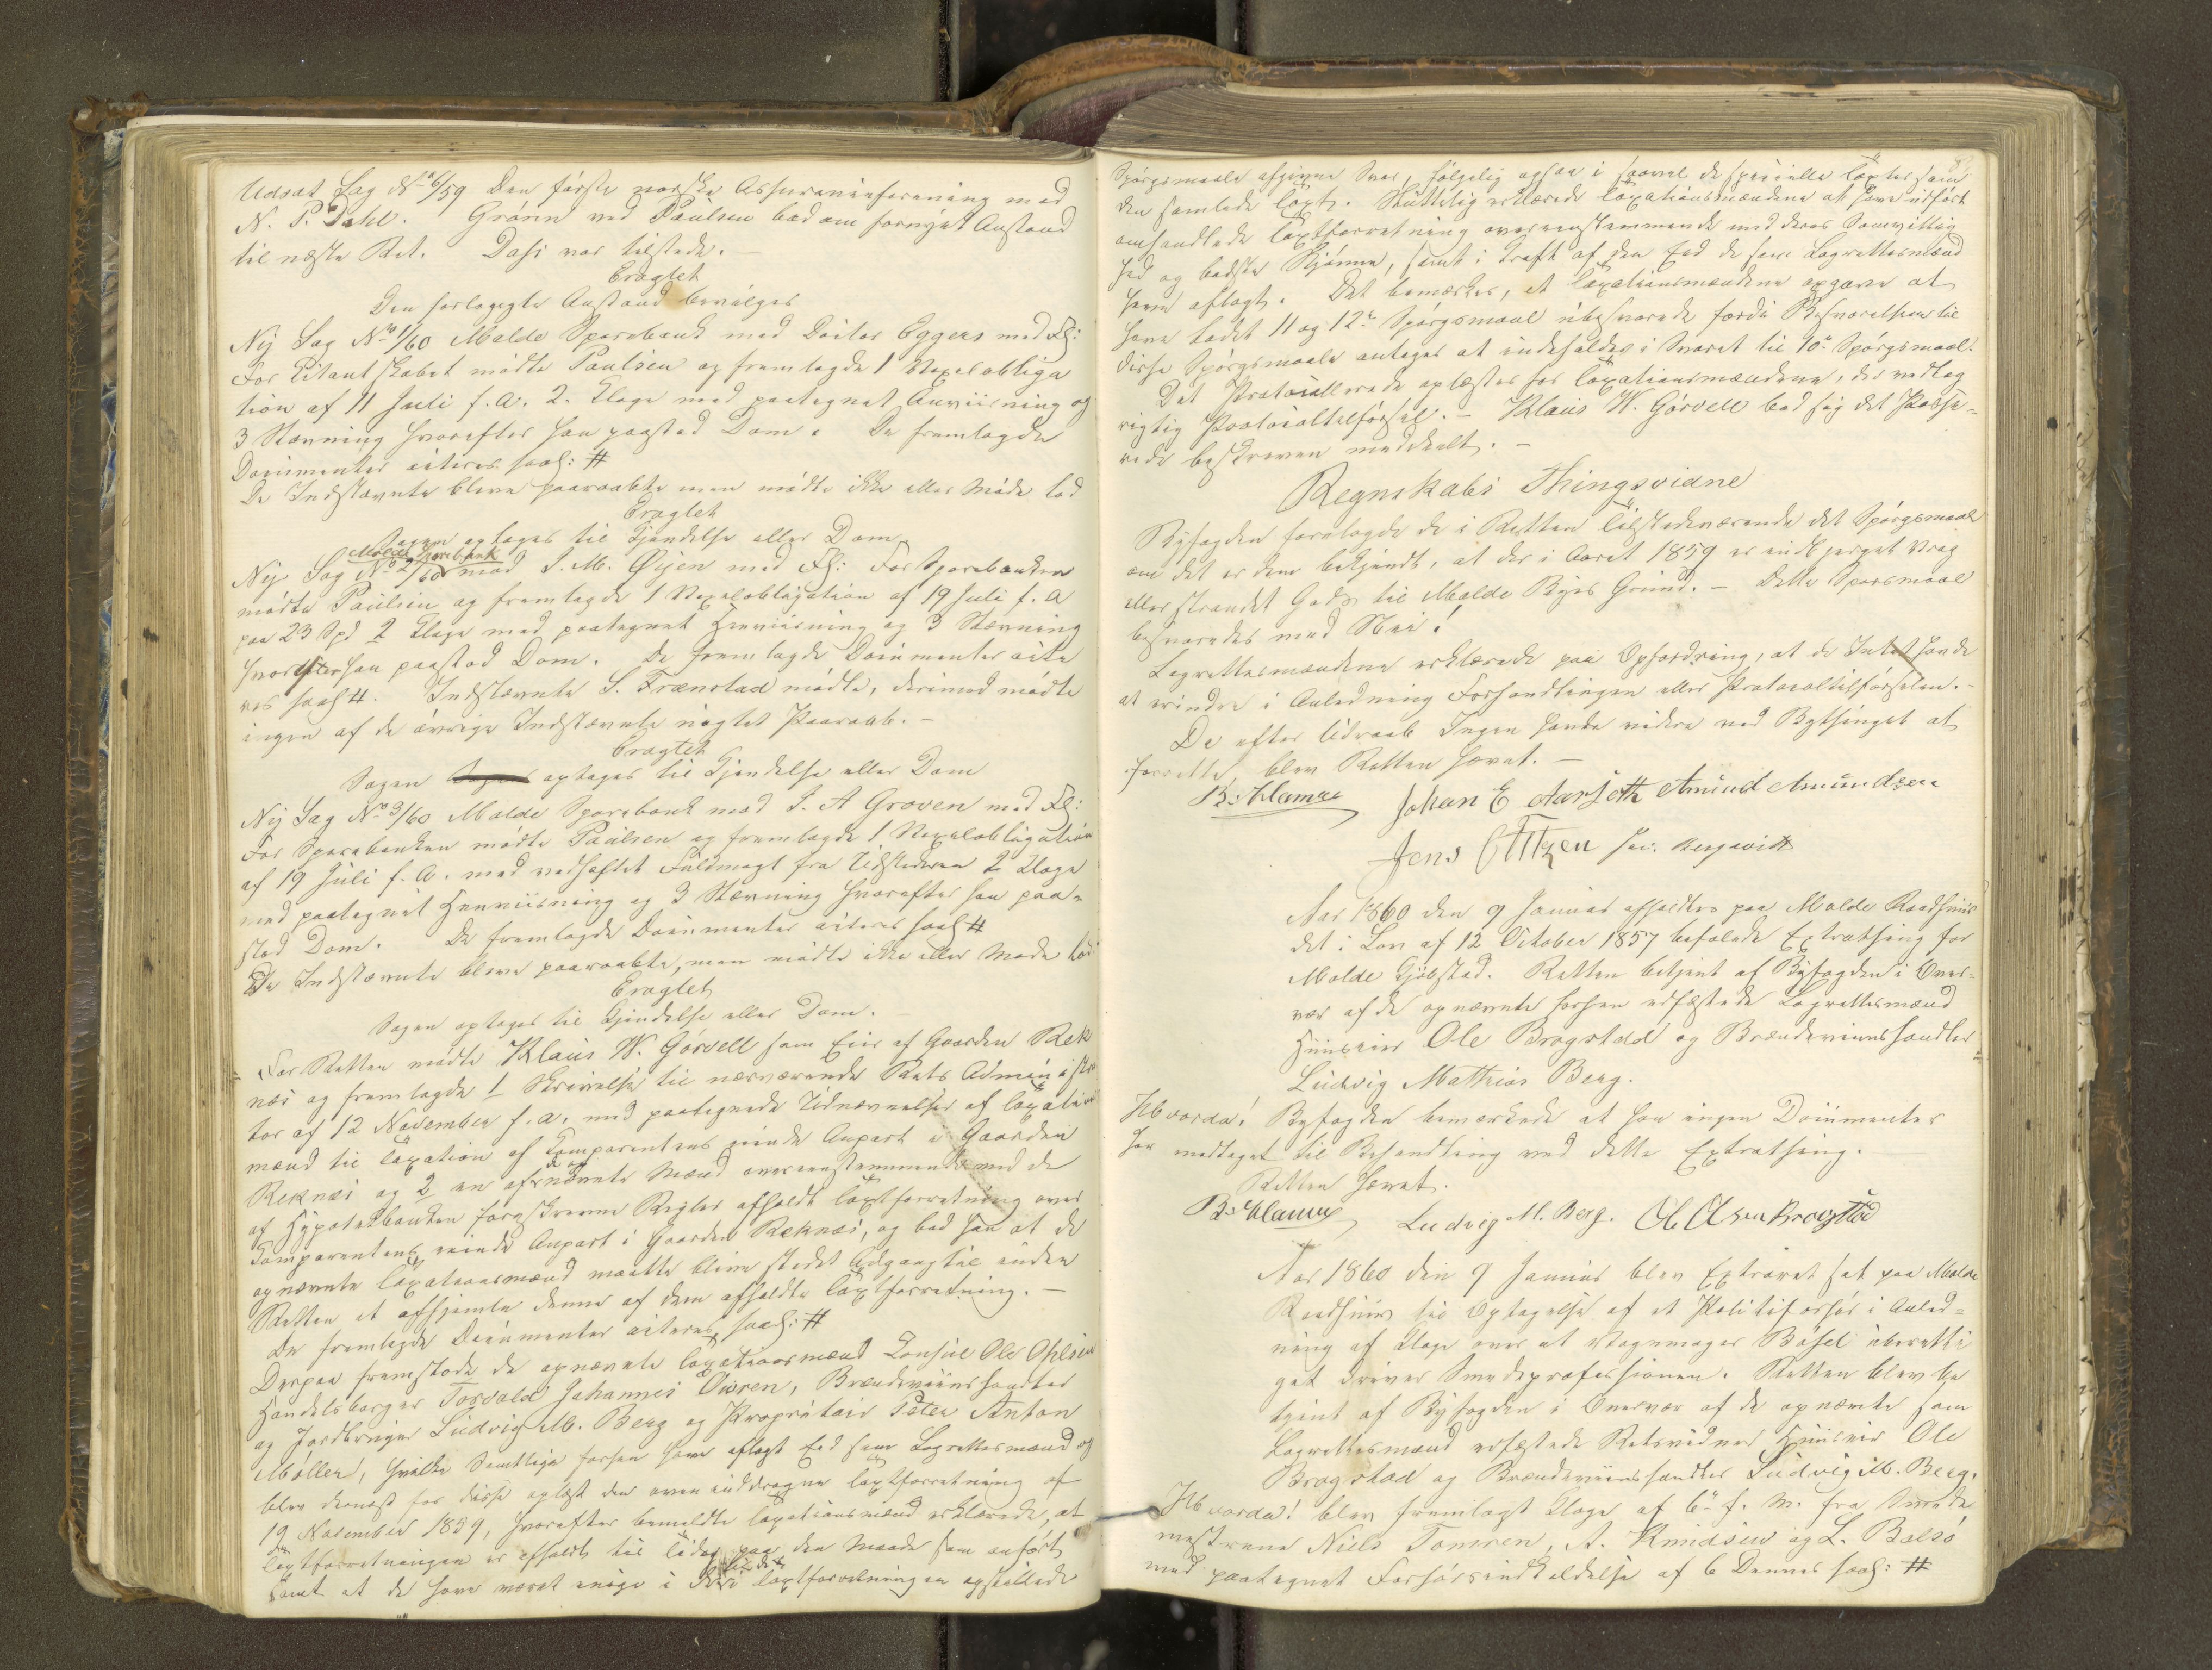 Udsat Sag No 6/59 Den første norske Assuranceforening mod
N. P. Dahl. Grønn ved Paulsen bad om fornyet Anstand
til næste Ret. Dass var tilstede. –
Eragtet
Den forlangte Anstand bevilges
Ny Sag No 1/60 Molde Sparebank mod Doctor Eggers med Fl:
For Citantskabet mødte Paulsen og fremlagde 1 Vexelobliga
tion af 11 Juli f. A. 2. Klage med paategnet Anviisning og
3 Stævning hvorefter han paastod Dom. De fremlagde
Documenter citeres saal: #
De Indstævnte bleve paaraabte men mødte ikke eller Møde lod
Eragtet
Sagen optages til Kjendelse eller Dom.
Molde Sparebank
Ny Sag No 2/60 mod J. M. Øijen med Fl: For Sparebanken
mødte Paulsen og fremlagde 1 Vexelobligation af 19 Juli f. A
paa 23 Spd 2 Klage med paategnet Henviisning og 3 Stævning
hvorefter han paastod Dom. De fremlagde Documenter cite
res saal #. Indstævnte S. Frænstad mødte, derimod mødte
ingen af de øvrige Indstævnte uagtet Paaraab. –
Eragtet
Sagen optages til Kjendelse eller Dom
Ny Sag No 3/60 Molde Sparebank mod J. A Groven med Fl:
For Sparebanken mødte Paulsen og fremlagde 1 Vexelobligation
af 19 Juli f. A. med vedhæftet Fuldmagt fra Udstederen 2 Klage
med paategnet Henviisning og 3 Stævning hvorefter han paa-
stod Dom. De fremlagde Documenter citeres saal #
De Indstævnte bleve paaraabte, men mødte ikke eller Møde lod
Eragtet
Sagen optages til Kjendelse eller Dom. –
For Retten mødte Klaus W. Görvell som Eier af Gaarden Rek
næs og fremlagde 1 Skrivelse til nærværende Rets Administra
tor af 12 November f. A. med paategnede Udnævnelse af Taxations
mænd til Taxation af Comparentens eiende Anpart i Gaarden
Reknæs og 2 en af de opnævnte Mænd overeensstemmende med de
af Hypothekbanken foreskrevne Regler afholdt Taxtforretning over
Comparentens eiende Anpart i Gaarden Reknæs, og bad han at de
opnævnte Taxationsmænd maatte blive stedet Adgang til inden
Retten at afhjemle denne af dem afholdte Taxtforretning. –
De fremlagte Documenter citeres, saal: #
Derpaa fremstode de opnævnte Taxationsmænd Consul Ole Ohlsen
Handelsborger Torvald Johannes Owren, Brændeviinshandler
og Jordbruger Ludvig M. Berg og Proprietair Peter Anton
Møller, hvilke Samtlige forhen have aflagt Eed som Lagrettesmænd og
blev dernæst for disse oplæst den oveninddragne Taxtforretning af
19 November 1859, hvorefter bemeldte Taxationsmænd erklærede, at
Taxtforretningen er afholdt til Tiden paa den Maade som anført
samt at de have været enige i de til Taxtforretningen opstillede
Spørgsmaale afgivne Svar, følgelig ogsaa i saavel de specielle Taxter som
den samlede Taxt. Sluttelig erklærede Taxationsmændene at have udført
omhandlede Taxtforretning overeensstemmende med deres Samvittig
hed og bedste Skjønne, samt i Kraft af den Eed de som Lagrettesmænd
have aflagt. Det bemærkes, at Taxationsmændene opgave at
have ladet 11 og 12te Spørgsmaal ubesvarede fordi Besvarelsen til
disse Spørgsmaale antages at indeholdes i Svaret til 10de Spørgsmaal.
Det Protocollerede oplæstes for Taxationsmændene, der vedtog
rigtig Protocoltilførsel. – Klaus W. Görvell bad sig det Passe-
rede beskreven meddeelt. –
Regnskabs Thingsvidne
Byfogden forelagde de i Retten Tilstedeværende det Spørgsmaal
om det er dem bekjendt, at der i Aaret 1859 er indbjerget Vrag
eller strandet Gods til Molde Byes Grund. – Dette Spørsmaal
besvaredes med Nei!
Lagrettesmændene erklærede paa Opfordring, at de Intet havde
at erindre i Anledning Forhandlingen eller Protocoltilførselen. –
Da efter Udraab Ingen havde videre ved Bythinget at
forrette, blev Retten hævet. –
B. Klamer Johan E Aarseth Amund Amundsen
Jens Ottzen Jac: Bergwitz
Aar 1860 den 9 Januar afholdtes paa Molde Raadhuus
det i Lov af 12 October 1857 befalede Extrathing for
Molde Kjøbstad. Retten betjent af Byfogden i Over-
vær af de opnævnte forhen edfæstede Lagrettesmænd
Huuseier Ole Brogstad og Brændeviinshandler
Ludvig Mathias Berg.
Hvorda! Byfogden bemærkede at han ingen Documenter
har modtaget til Behandling ved dette Extrathing.
Retten hævet.
B. Klamer Ludvig M. Berg. Ole Olsen Brogstad
Aar 1860 den 9 Januar blev Extraret sat paa Molde
Raadhuus til Optagelse af et Politiforhør i Anled-
ning af Klage over at Vognmager Bøsel uberetti
get driver Smedeprofessionen. Retten blev be
tjent af Byfogden i Overvær af de opnævnte som
Lagrettesmænd edfæstede Retsvidner Huuseier Ole
Brogstad og Brændeviinshandler Ludvig M. Berg.
Hvorda! blev fremlagt Klage af 6te f. M. fra Smede
mestrene Niels Tomren, A. Knudsen og L. Bolsø
med paategnet Forhørsindkaldelse af 6 Dennes saal: #